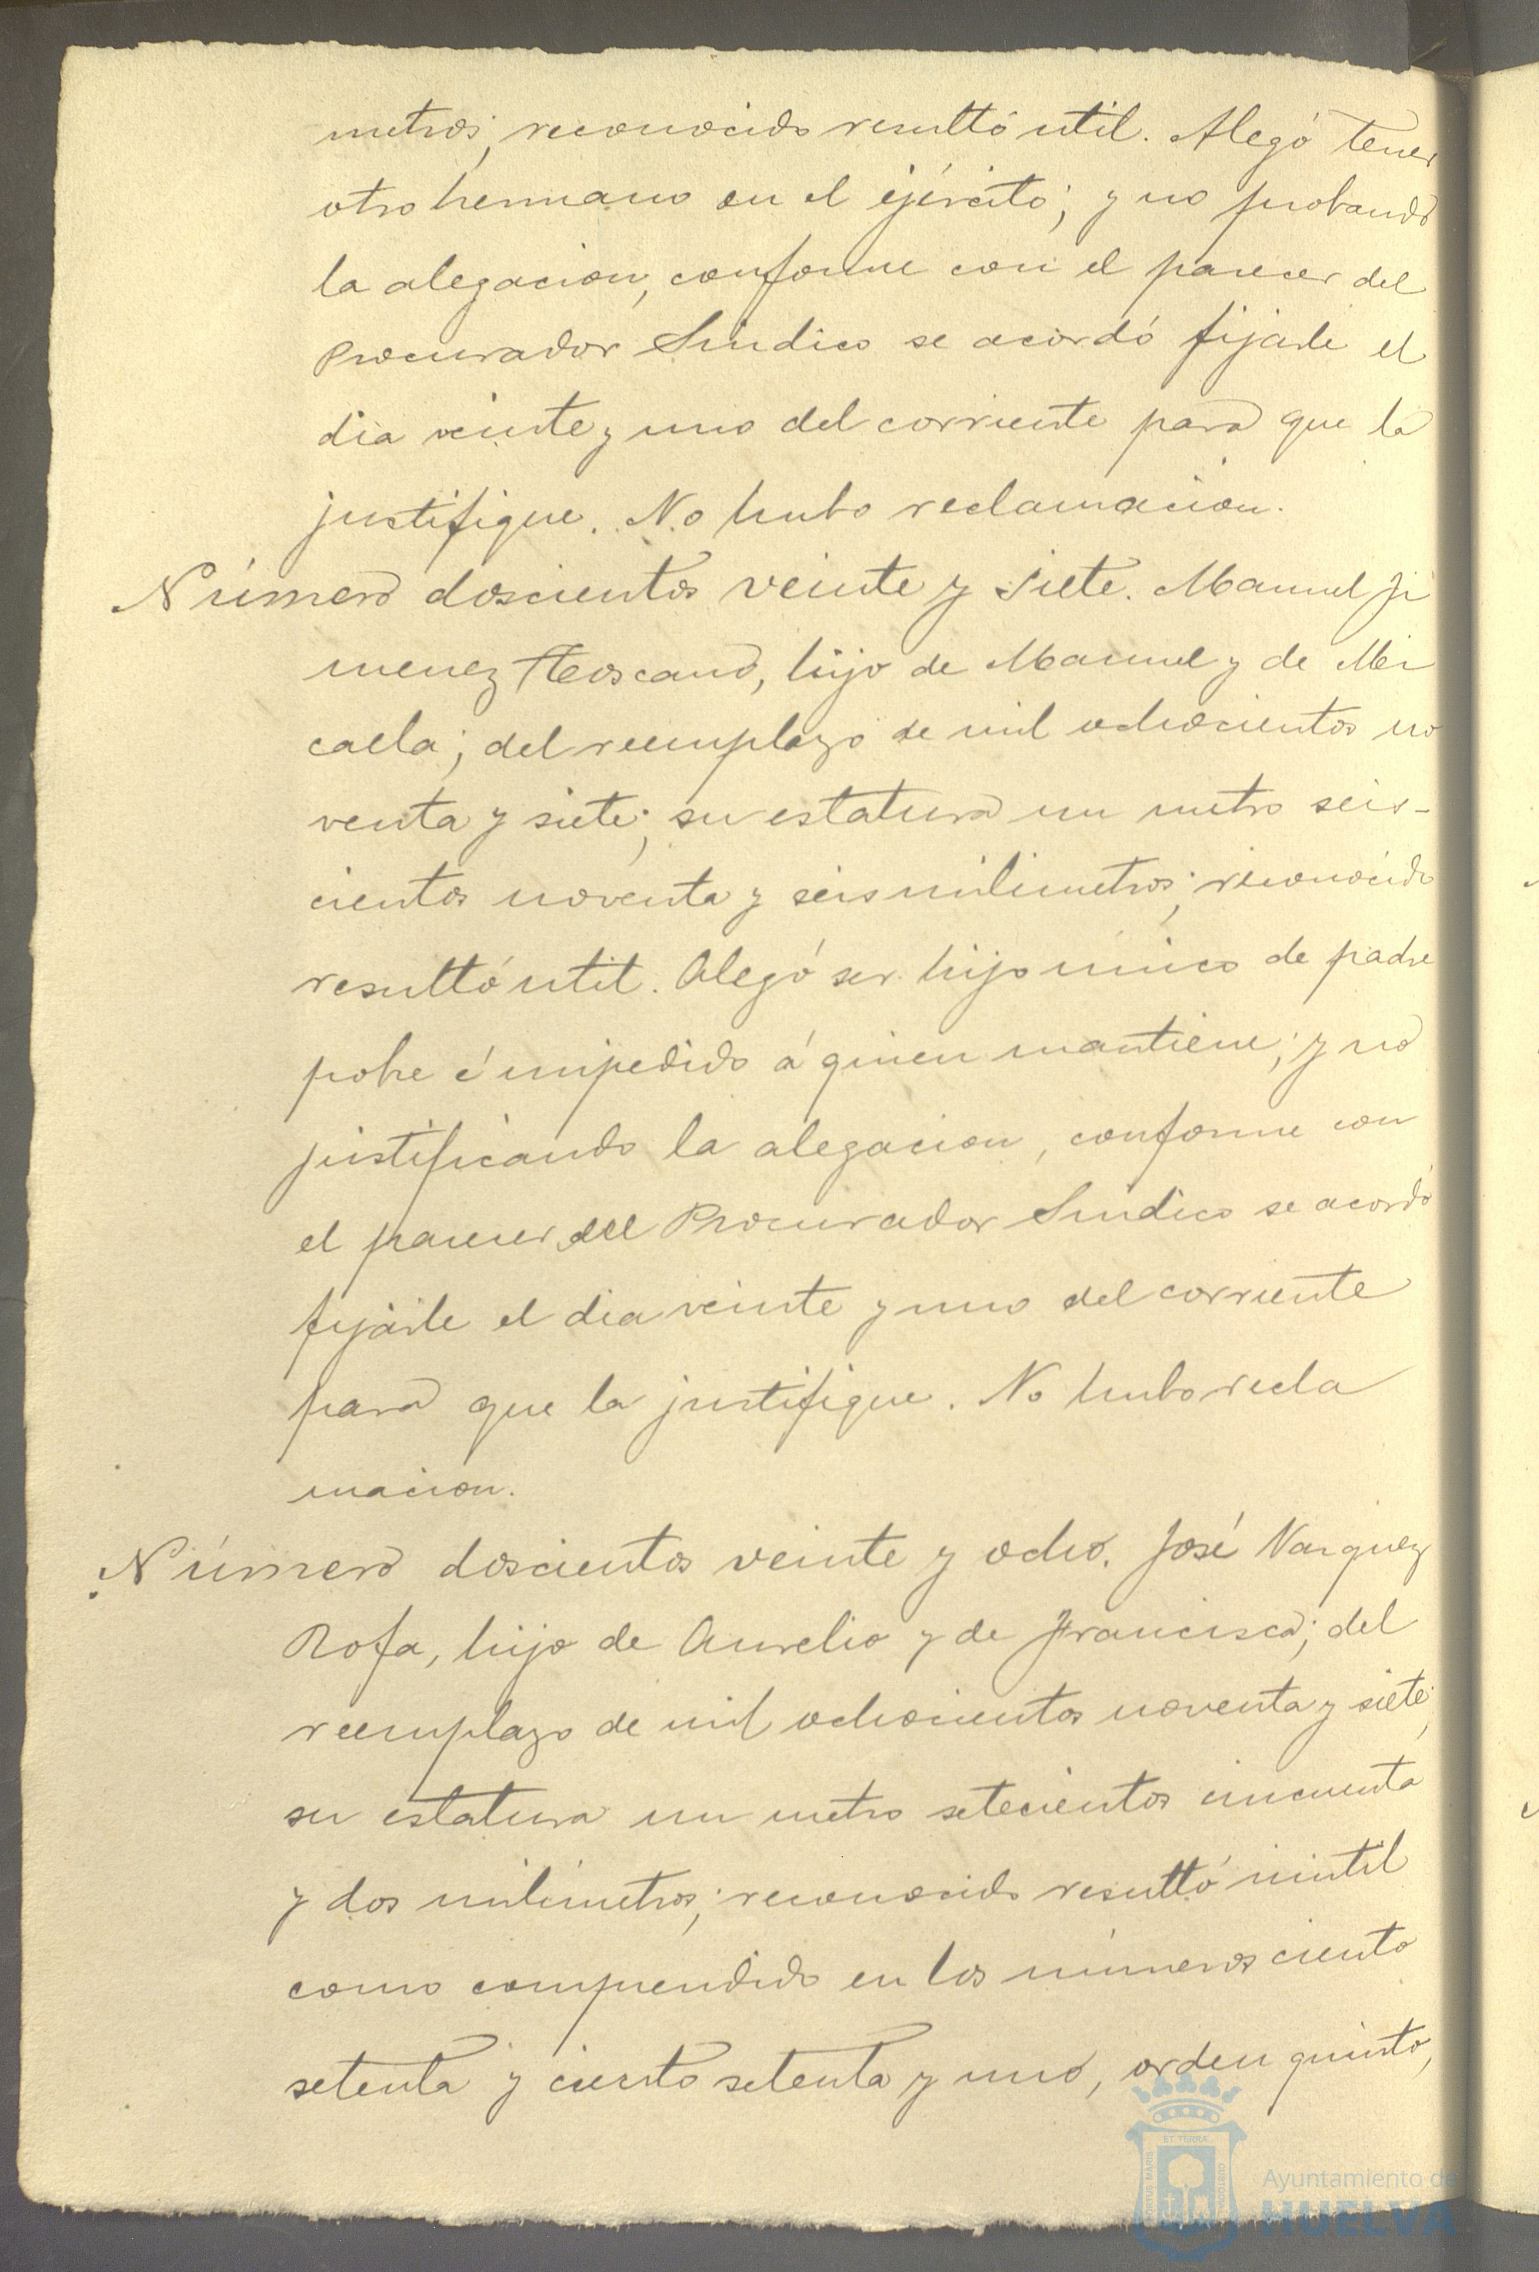 metros; reconocido resultó util. Alegó tener
otro hermano en el ejército; y no probando
la alegacion, conforme con el parecer del
Procurador Sindico se acordó fijarle el
dia veinte y uno del corriente para que la
justifique. No hubo reclamacion.
Número doscientos veinte y siete. Manuel Ji
menez Toscano, hijo de Manuel y de Mi
caela; del reemplazo de mil ochocientos no
venta y siete; su estatura un metro seis-
cientos noventa y seis milimetros; reconocido
resultó util. Alegó ser hijo único de padre
pobre é impedido á quien mantiene; y no
justificando la alegacion, conforme con
el parecer del Procurador Sindico se acordó
fijarle el dia veinte y uno del corriente
para que la justifique. No hubo recla
macion.
Número doscientos veinte y ocho. José Vazquez
Rofa, hijo de Aurelio y de Francisca; del
reemplazo de mil ochocientos noventa y siete;
su estatura un metro setecientos cincuenta
y dos milimetros; reconocido resultó inutil
como comprendido en los números ciento
setenta y ciento setenta y uno, orden quinto,
Ayuntamiento de
HUELVA